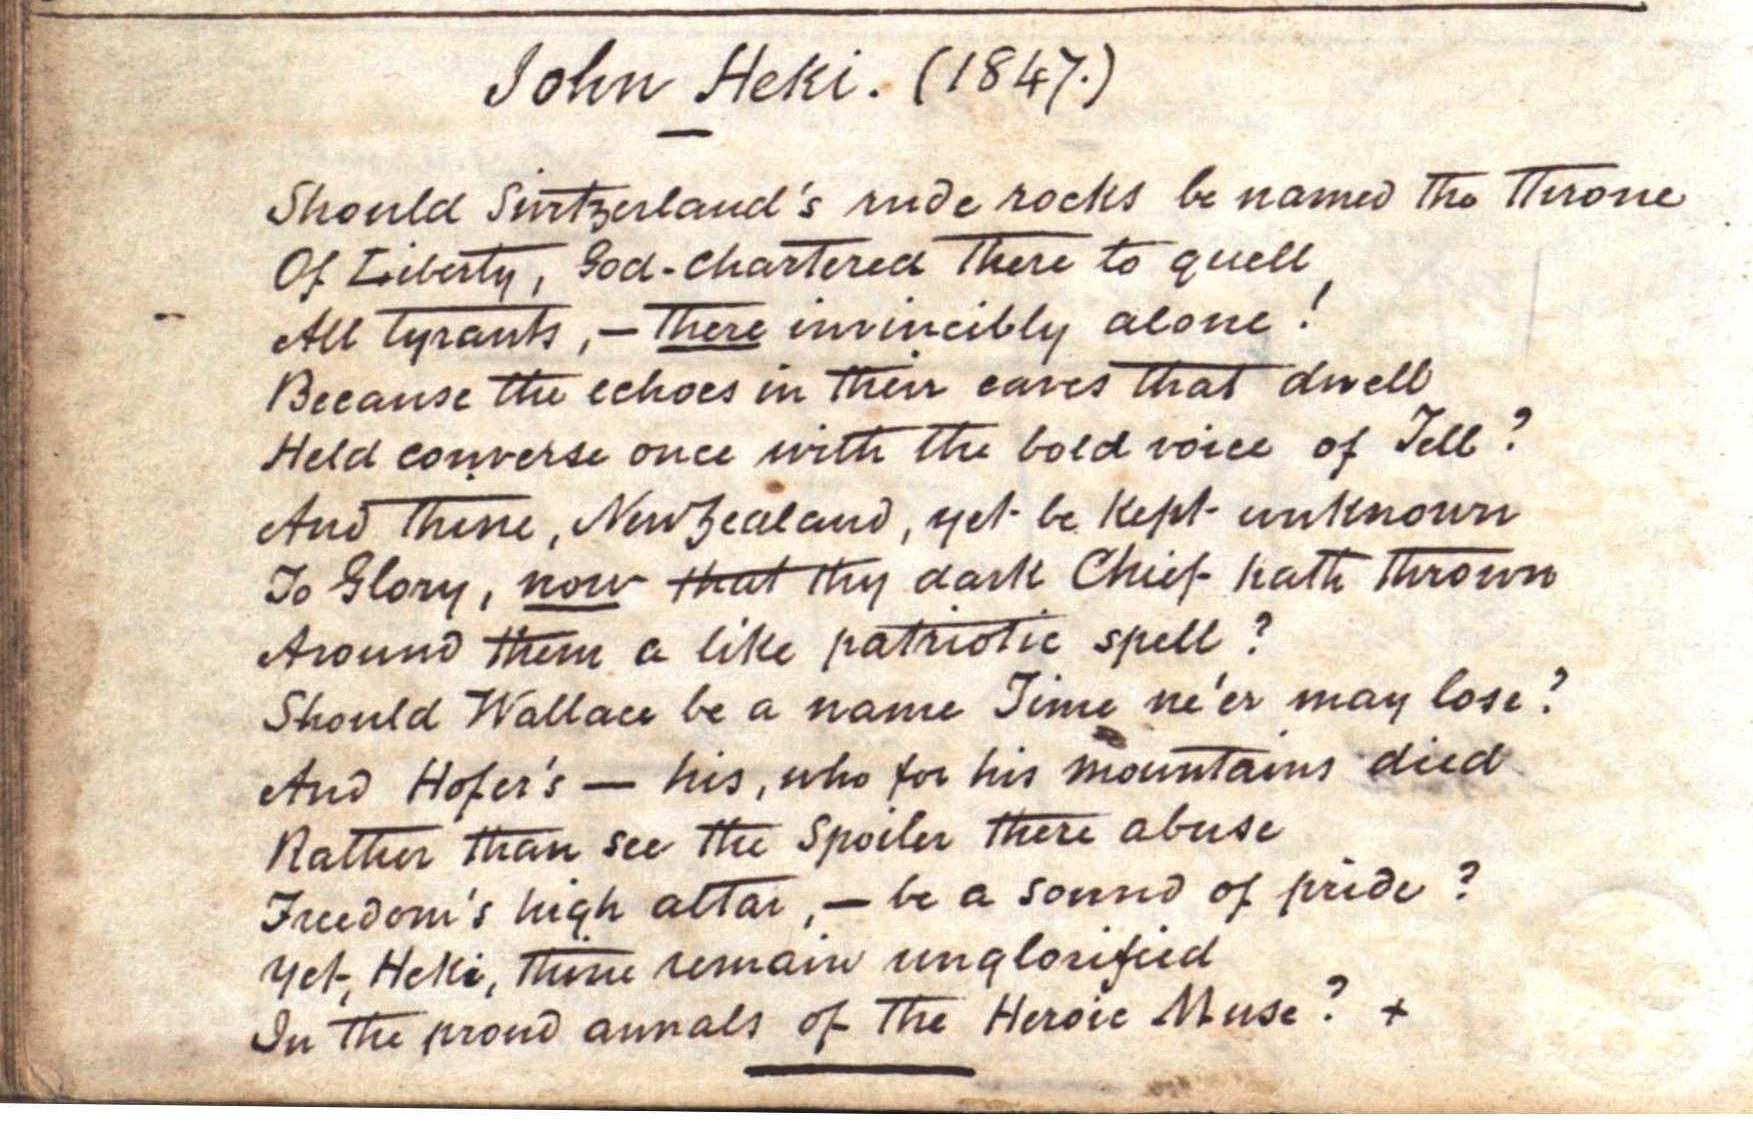 John Heki. (1847.)
Should Switzerland's rude rocks be named the throne
Of Liberty, God-chartered there to quell
All tyrants, — there invincibly alone!
Because the echoes in their caves that dwell
Held converse once with the bold voice of Tell?
And thine, New Zealand, yet be kept unknown
To Glory, now that thy dark Chief hath thrown
Around them a like patriotic spell?
Should Wallace be a name Time ne'er may lose?
And Hofer's — his, who for his mountains died
Rather than see the Spoiler there abuse
Freedom's high altar, — be a sound of pride?
Yet, Heki, thine remain unglorified
In the proud annals of the Heroic Muse? +